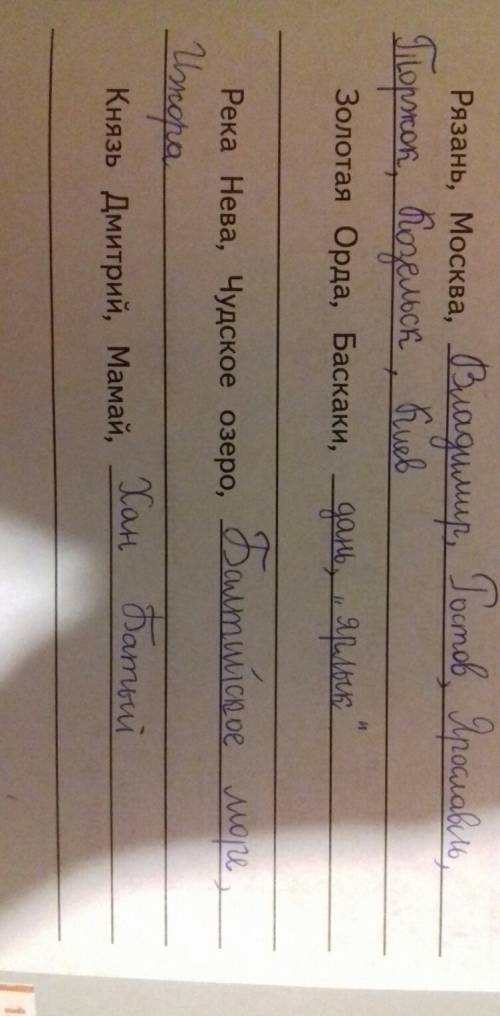 Рязань, Москва, Владимир, Ростов, Ярославль,
Торжок, Козельск, Киев
Золотая Орда, Баскаки, дань, „Ярлык"
Река Нева, Чудское озеро, Балтийское море,
Ижора
Князь Дмитрий, Мамай, Хан Батый
1